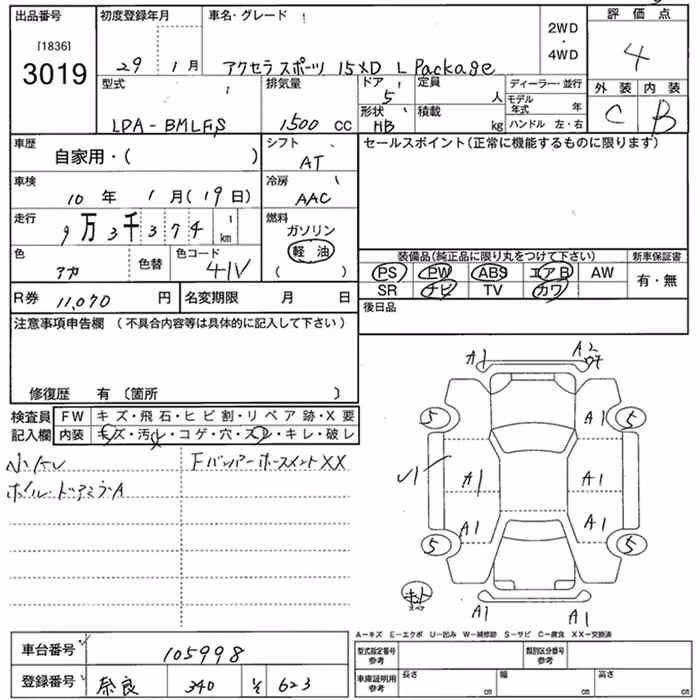 出品番号
[1836]
3019
初度登録年月
29 1月
車名・グレード
アクセラスポーツ 15XD L Package
2WD
・
4WD
評価点
4
外装 内装
C B
型式
LDA-BMLFS
排気量
1500 cc
ドア
5
定員
人
形状
HB
積載
kg
ディーラー・並行
モデル年式 年
ハンドル 左・右
車歴
自家用・( )
シフト
AT
車検
10年 1月(19日)
冷房
AAC
走行
9万3千374km
燃料
ガソリン
軽油
( )
色
アカ
色替
色コード
41V
R券 11,070円
名変期限 月 日
セールスポイント(正常に機能するものに限ります)
装備品(純正品に限り丸をつけて下さい)
PS PW ABS エアB AW
SR ナビ TV カワ
新車保証書
有・無
後日品
注意事項申告欄 (不具合内容等は具体的に記入して下さい)
修復歴 有〔箇所 〕
検査員
記入欄
FW キズ・飛石・ヒビ割・リペア跡・X要
内装 キズ・汚レ・コゲ・穴・スレ・キレ・破レ
Fバンパーホースメント XX
ホイル・ドアミラーA
A1 A2
5 A1 5
A1 A1
A1 A1
5 5
キット
スペア
A1 A1
A-キズ E-エクボ U-凹み W-補修跡 S-サビ C-腐食 XX-交換済
車台番号
105998
登録番号
奈良 340 623
型式指定番号
参考
類別区分番号
参考
車庫証明用
参考
長さ cm
幅 cm
高さ cm